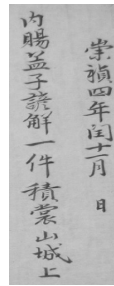 崇禎四年閏十一月 日
內賜孟子諺解一件積裳山城上